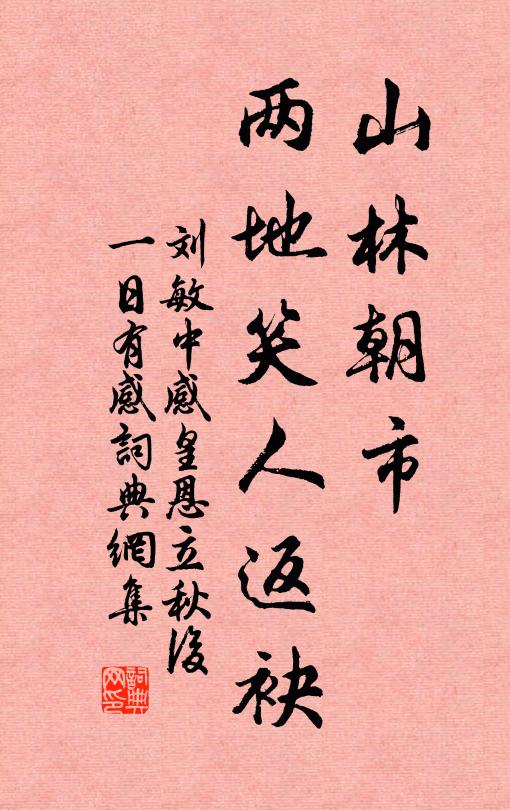 山林朝市
两地笑人返袂
刘敏中感皇恩立秋後
一日有感詞典網集
詞典网印